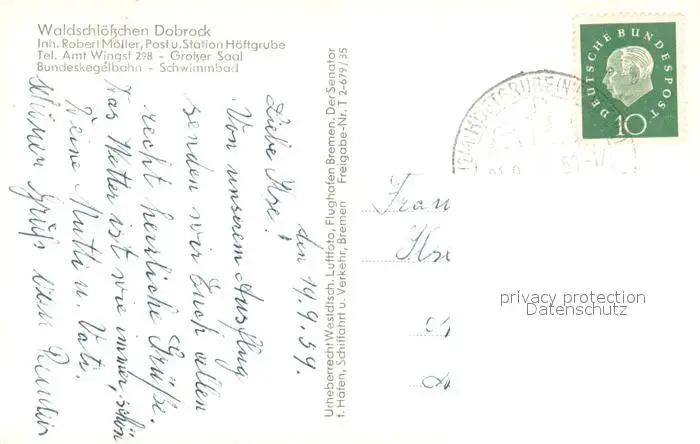 Waldschlößchen Dobrock
Inh. Robert Möller, Post u. Station Höftgrube
Tel. Amt Wingst 298 - Großer Saal
Bundeskegelbahn - Schwimmbad
den 19.9.59.
Liebe Ilse!
Von unserem Ausflug
senden wir Euch allen
recht herzliche Grüße.
Das Wetter ist wie immer, schön
Deine Mutti u. Vati.
Gruß
Urheberrecht Westdtsch. Luftfoto, Flughafen Bremen. Der Senator
f. Häfen, Schiffahrt u. Verkehr, Bremen Freigabe-Nr. T 2-679/35
DEUTSCHE BUNDESPOST
10
Frau
privacy protection
Datenschutz